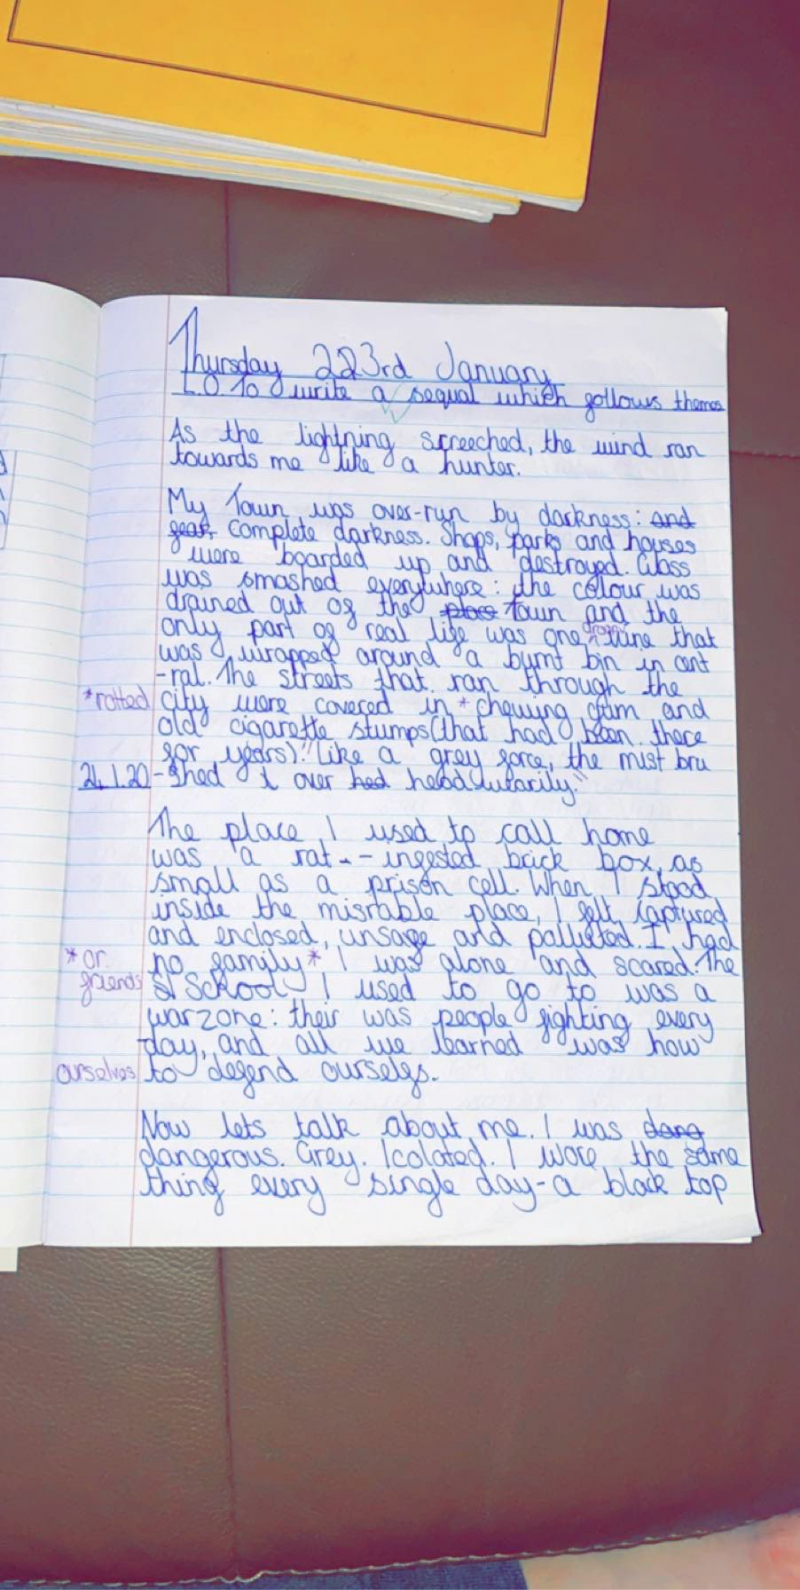 Thursday 223rd January
L.O To write a sequal which follows themes
As the lightning screeched, the wind ran
towards me like a hunter.
My Town was over-run by darkness: and
fear, complete darkness. Shops, parks and houses
were boarded up and destroyed. Glass
was smashed everywhere: the colour was
drained out of the place town and the
only part of real life was one vine that
was wrapped around a burnt bin in cent
-ral. The streets that ran through the
*rotted city were covered in * chewing gum and
old cigarette stumps (that had been there
for years). "Like a grey force, the mist bru
24.1.20 -shed i over hed head warily."
The place I used to call home
was a rat - - infested brick box, as
small as a prison cell. When I stood
inside the misrable place, I felt captured
and enclosed, unsafe and polluted. I had
*or no family* I was alone and scared. The
friends School I used to go to was a
warzone: their was people fighting every
day, and all we learned was how
ourselves to defend ourselfs.
Now lets talk about me. I was dang
dangerous. Grey. Icolated. I wore the same
thing every single day-a black top